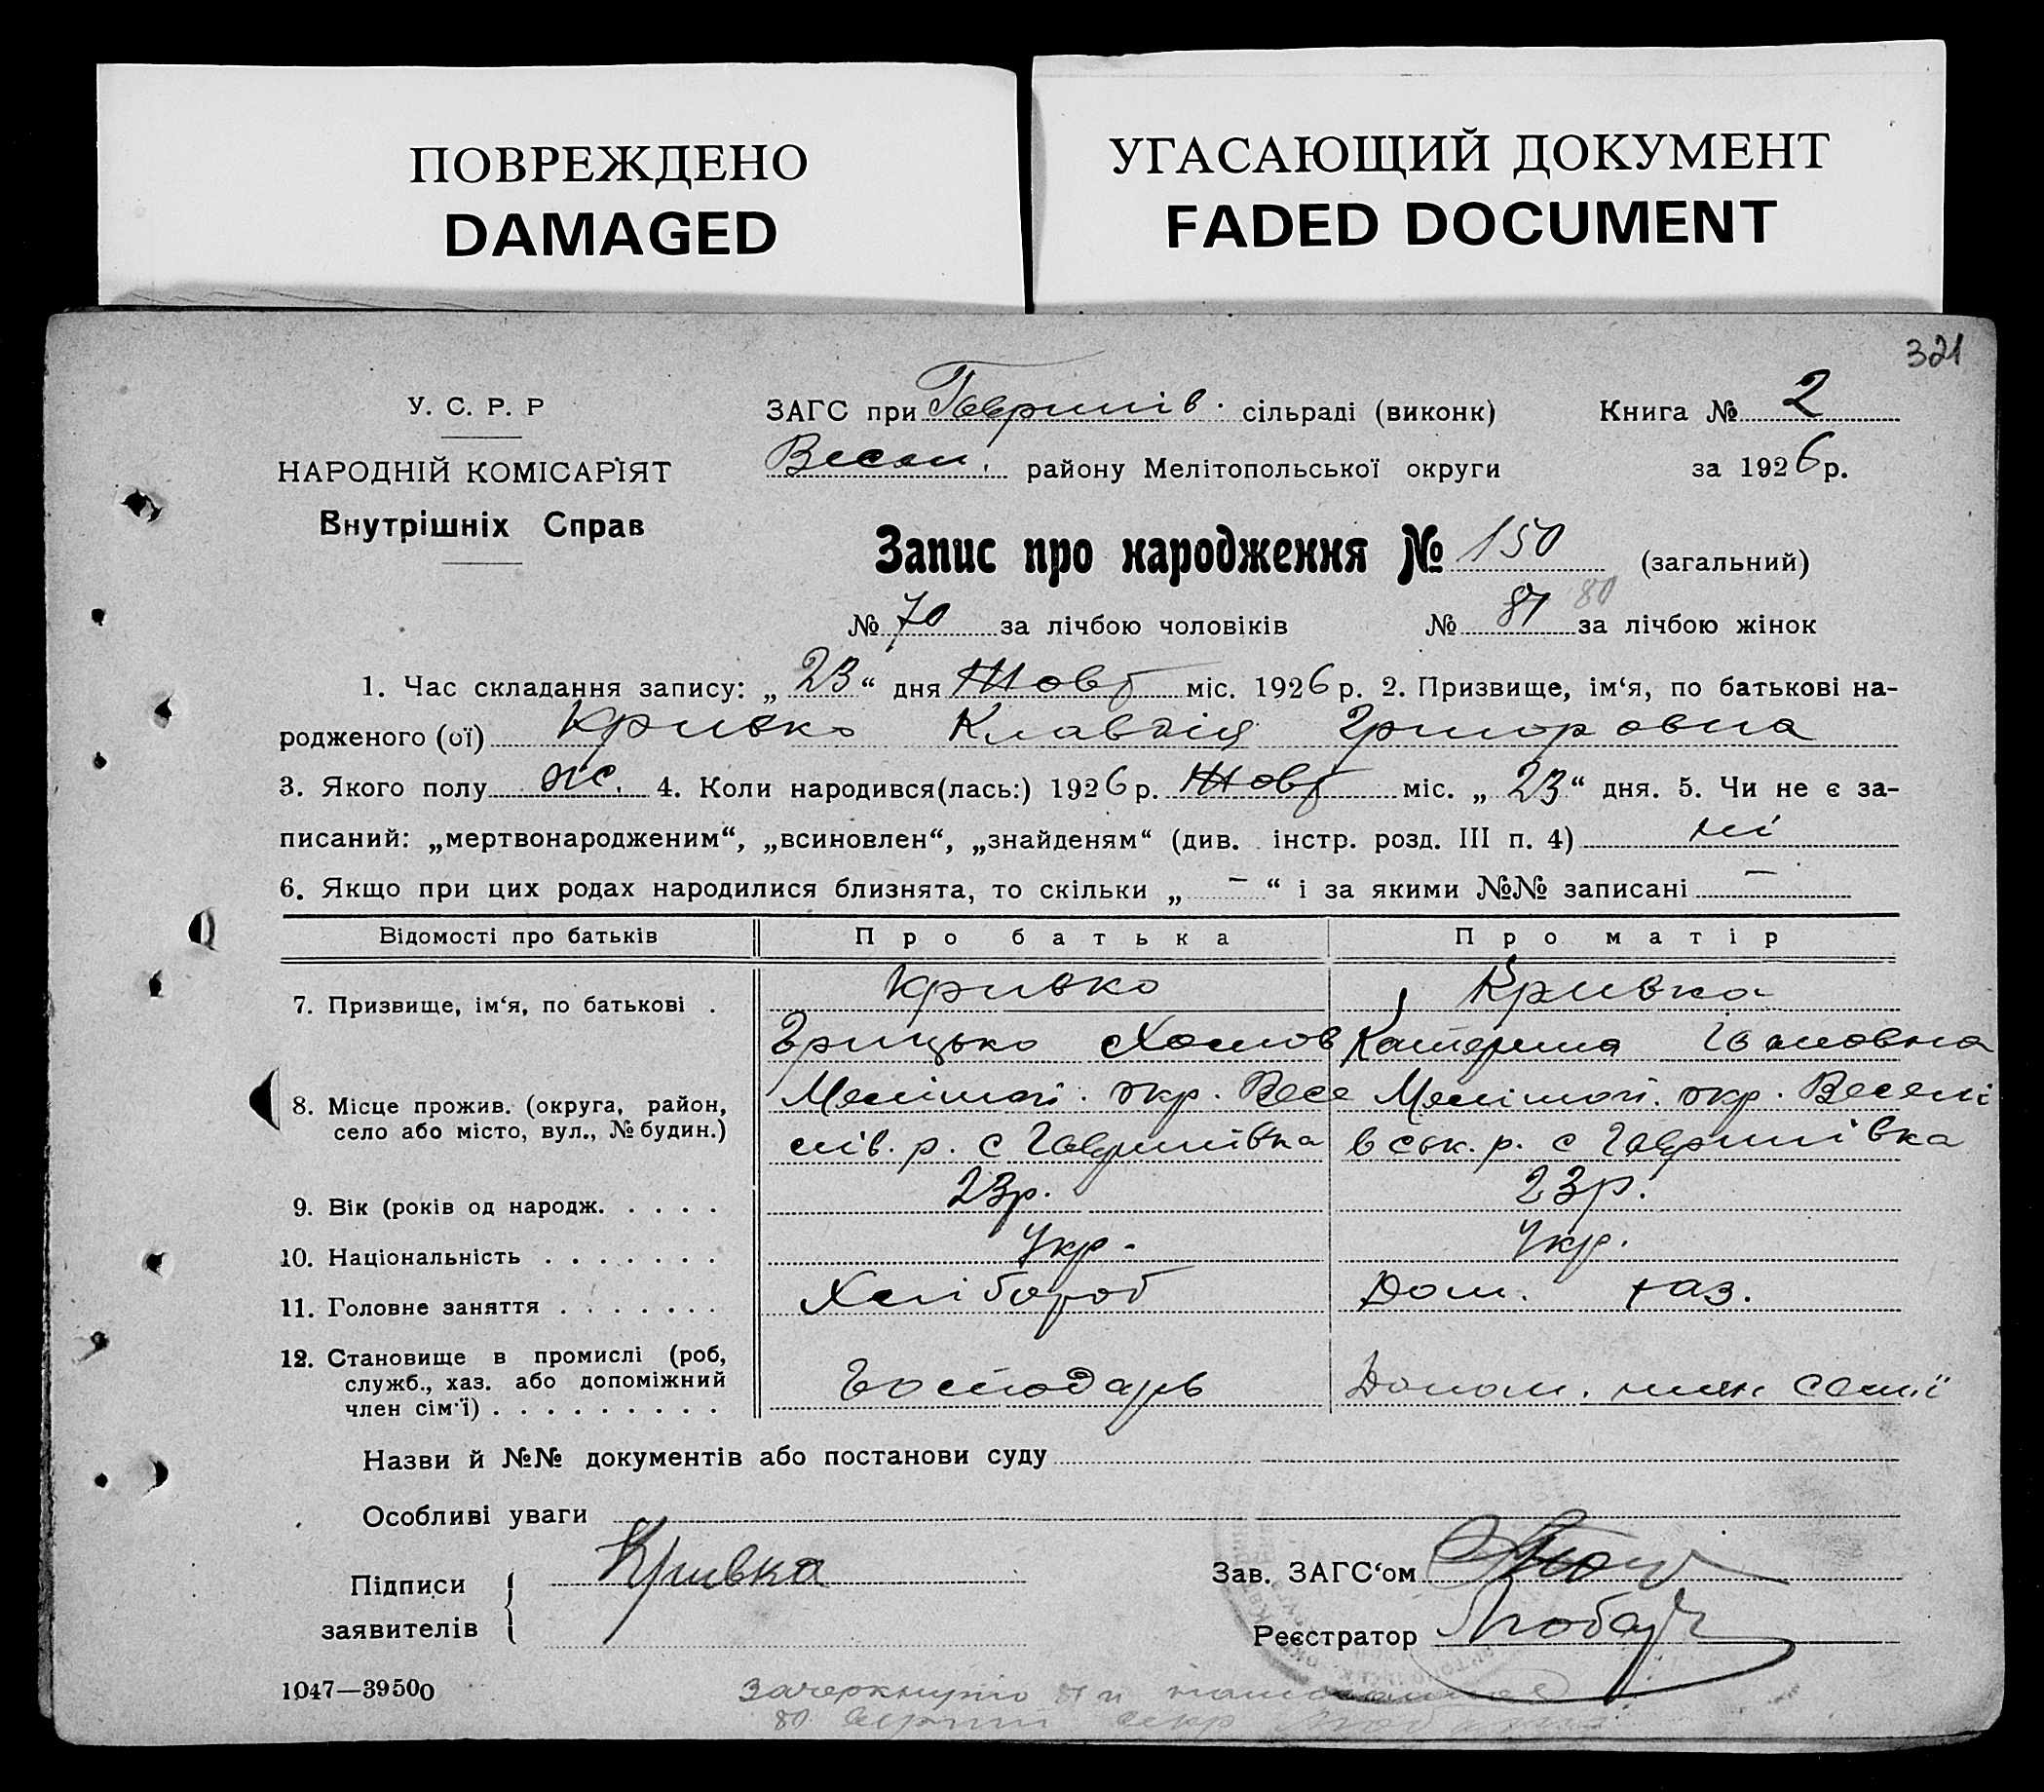 ПОВРЕЖДЕНО
DAMAGED
УГАСАЮЩИЙ ДОКУМЕНТ
FADED DOCUMENT
321
У. С. Р. Р
НАРОДНІЙ КОМІСАРІЯТ
Внутрішніх Справ
ЗАГС при Гаврилів. сільраді (виконк) Книга № 2
Весел. району Мелітопольської округи за 1926 р.
Запис про народження № 150 (загальний)
№ 70 за лічбою чоловіків № 81 80 за лічбою жінок
1. Час складання запису: „23“ дня Жовт міс. 1926 р. 2. Призвище, ім‘я, по батькові на-
родженого (ої) Кривко Клавдія Григоровна
3. Якого полу ж. 4. Коли народився(лась:) 1926 р. Жовт міс. „23“ дня. 5. Чи не є за-
писаний: „мертвонародженим“, „всиновлен“, „знайденям“ (див. інстр. розд. III п. 4) ні
6. Якщо при цих родах народилися близнята, то скільки „ — “ і за якими №№ записані —
Відомості про батьків Про батька Про матір
7. Призвище, ім‘я, по батькові . Кривко Кривка
Грицько Хомов Катерина Івановна
8. Місце прожив. (округа, район, село або місто, вул., № будин.) Мелітоп. окр. Весе Мелітоп. окр. Веселі
лів. р. с Гаврилівка вськ. р. с Гаврилівка
9. Вік (років од народж. . . . . 23р. 23р.
10. Національність . . . . . . . Укр. Укр.
11. Головне заняття . . . . . . . Хлібороб Дом. хаз.
12. Становище в промислі (роб, служб., хаз. або допоміжний член сім‘ї) . . . . . . . . . Господарь Допом. член семії
Назви й №№ документів або постанови суду
Особливі уваги
Підписи заявителів Кривка
Зав. ЗАГС‘ом
Реєстратор
1047—39500
Зачеркнуто 81 и написанное
80